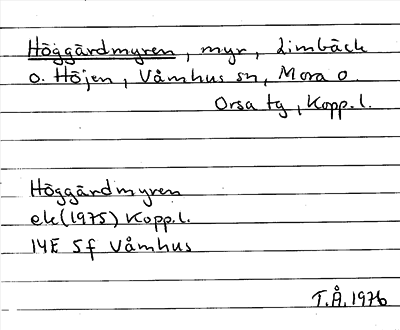 Höggärdmyren, myr, Limbäck
o. Höjen, Våmhus sn, Mora o.
Orsa tg, Kopp.l.
Höggärdmyren
ek(1975) Kopp.l.
14E 5f Våmhus
T.Å. 1976